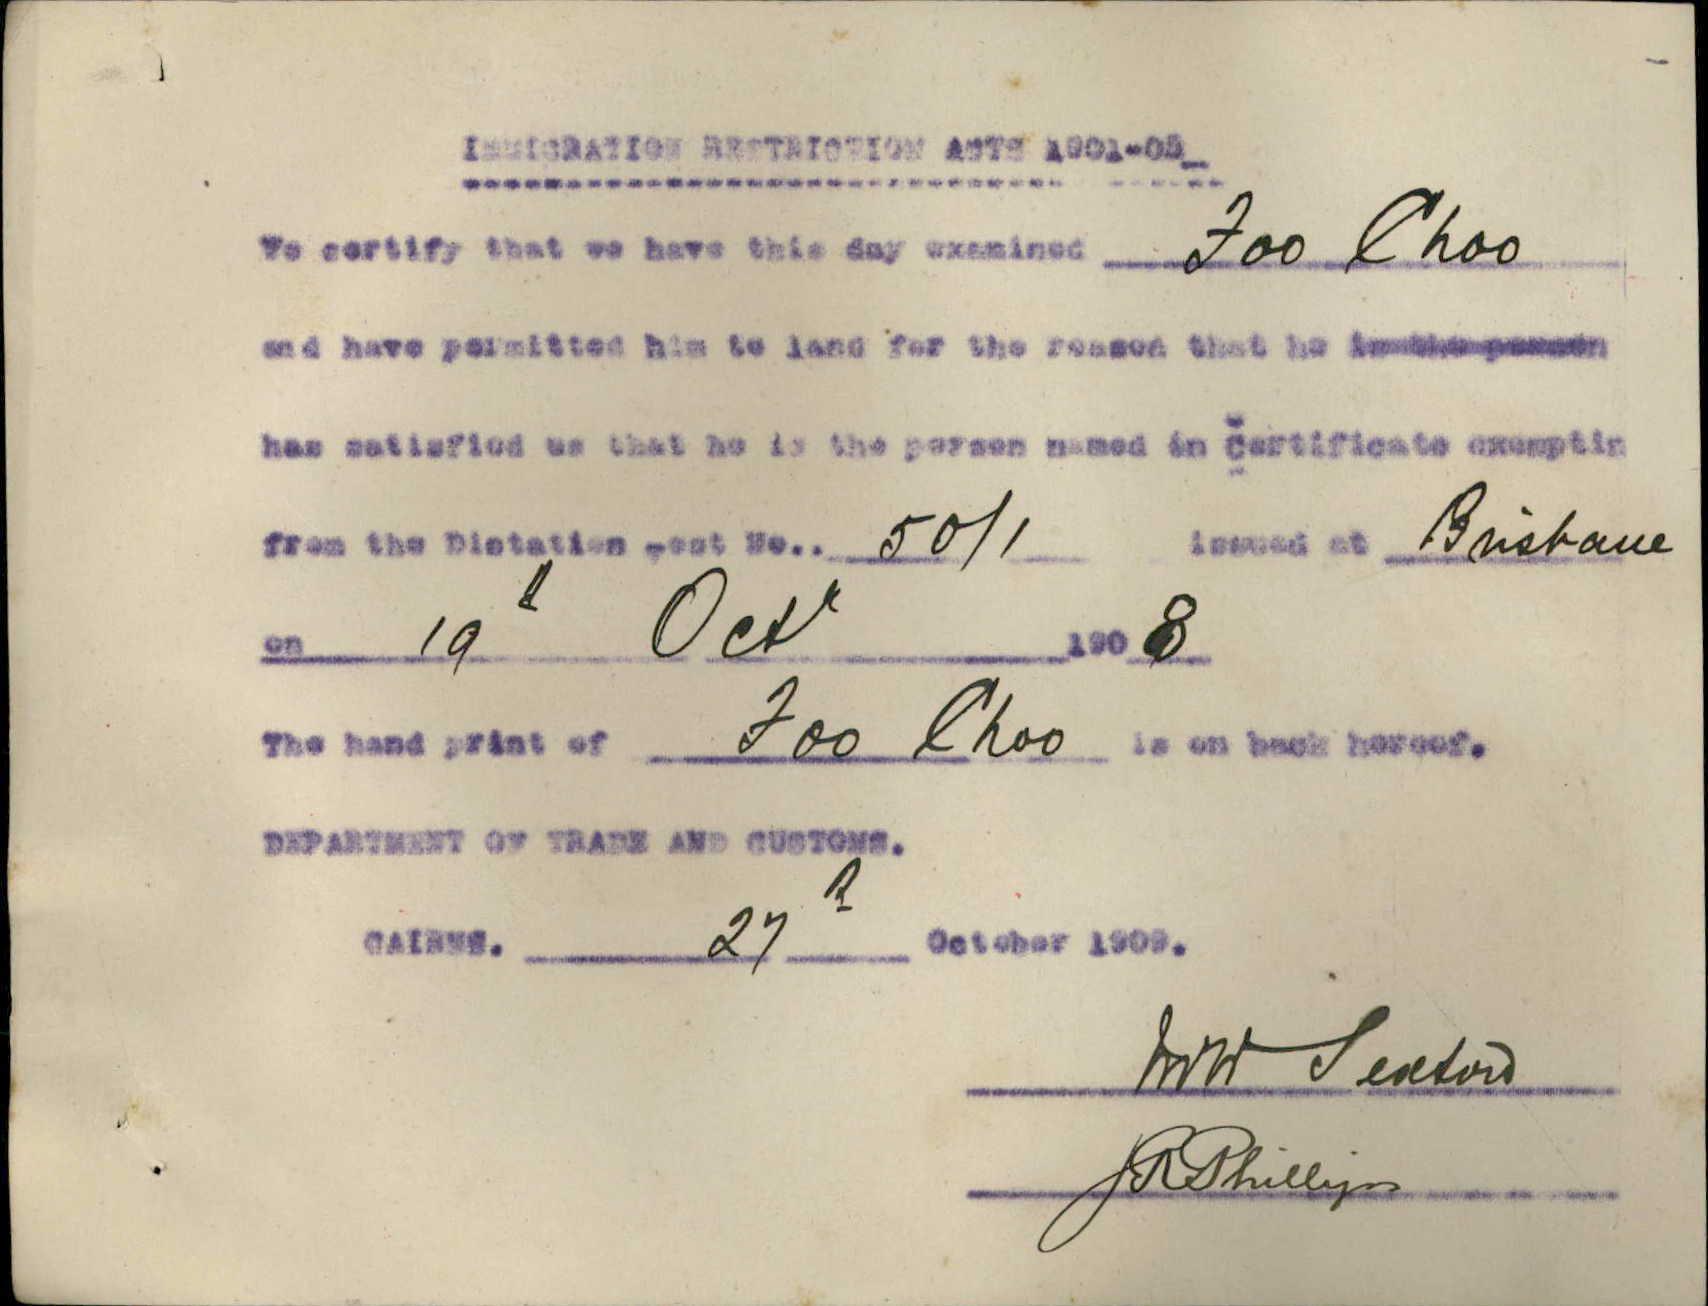 IMMIGRATION RESTRICTION ACTS 1901-05_
We certify that we have this day examined Foo Choo
and have permitted him to land for the reason that he is the person
has satisfied us that he is the person named in Certificate exemptin
from the Dictation Test No.. 50/1 issued at Brisbane
on 19th Octr 1908
The hand print of Foo Choo is on back hereof.
DEPARTMENT OF TRADE AND CUSTOMS.
CAIRNS. 27th October 1909.
JRPhillips